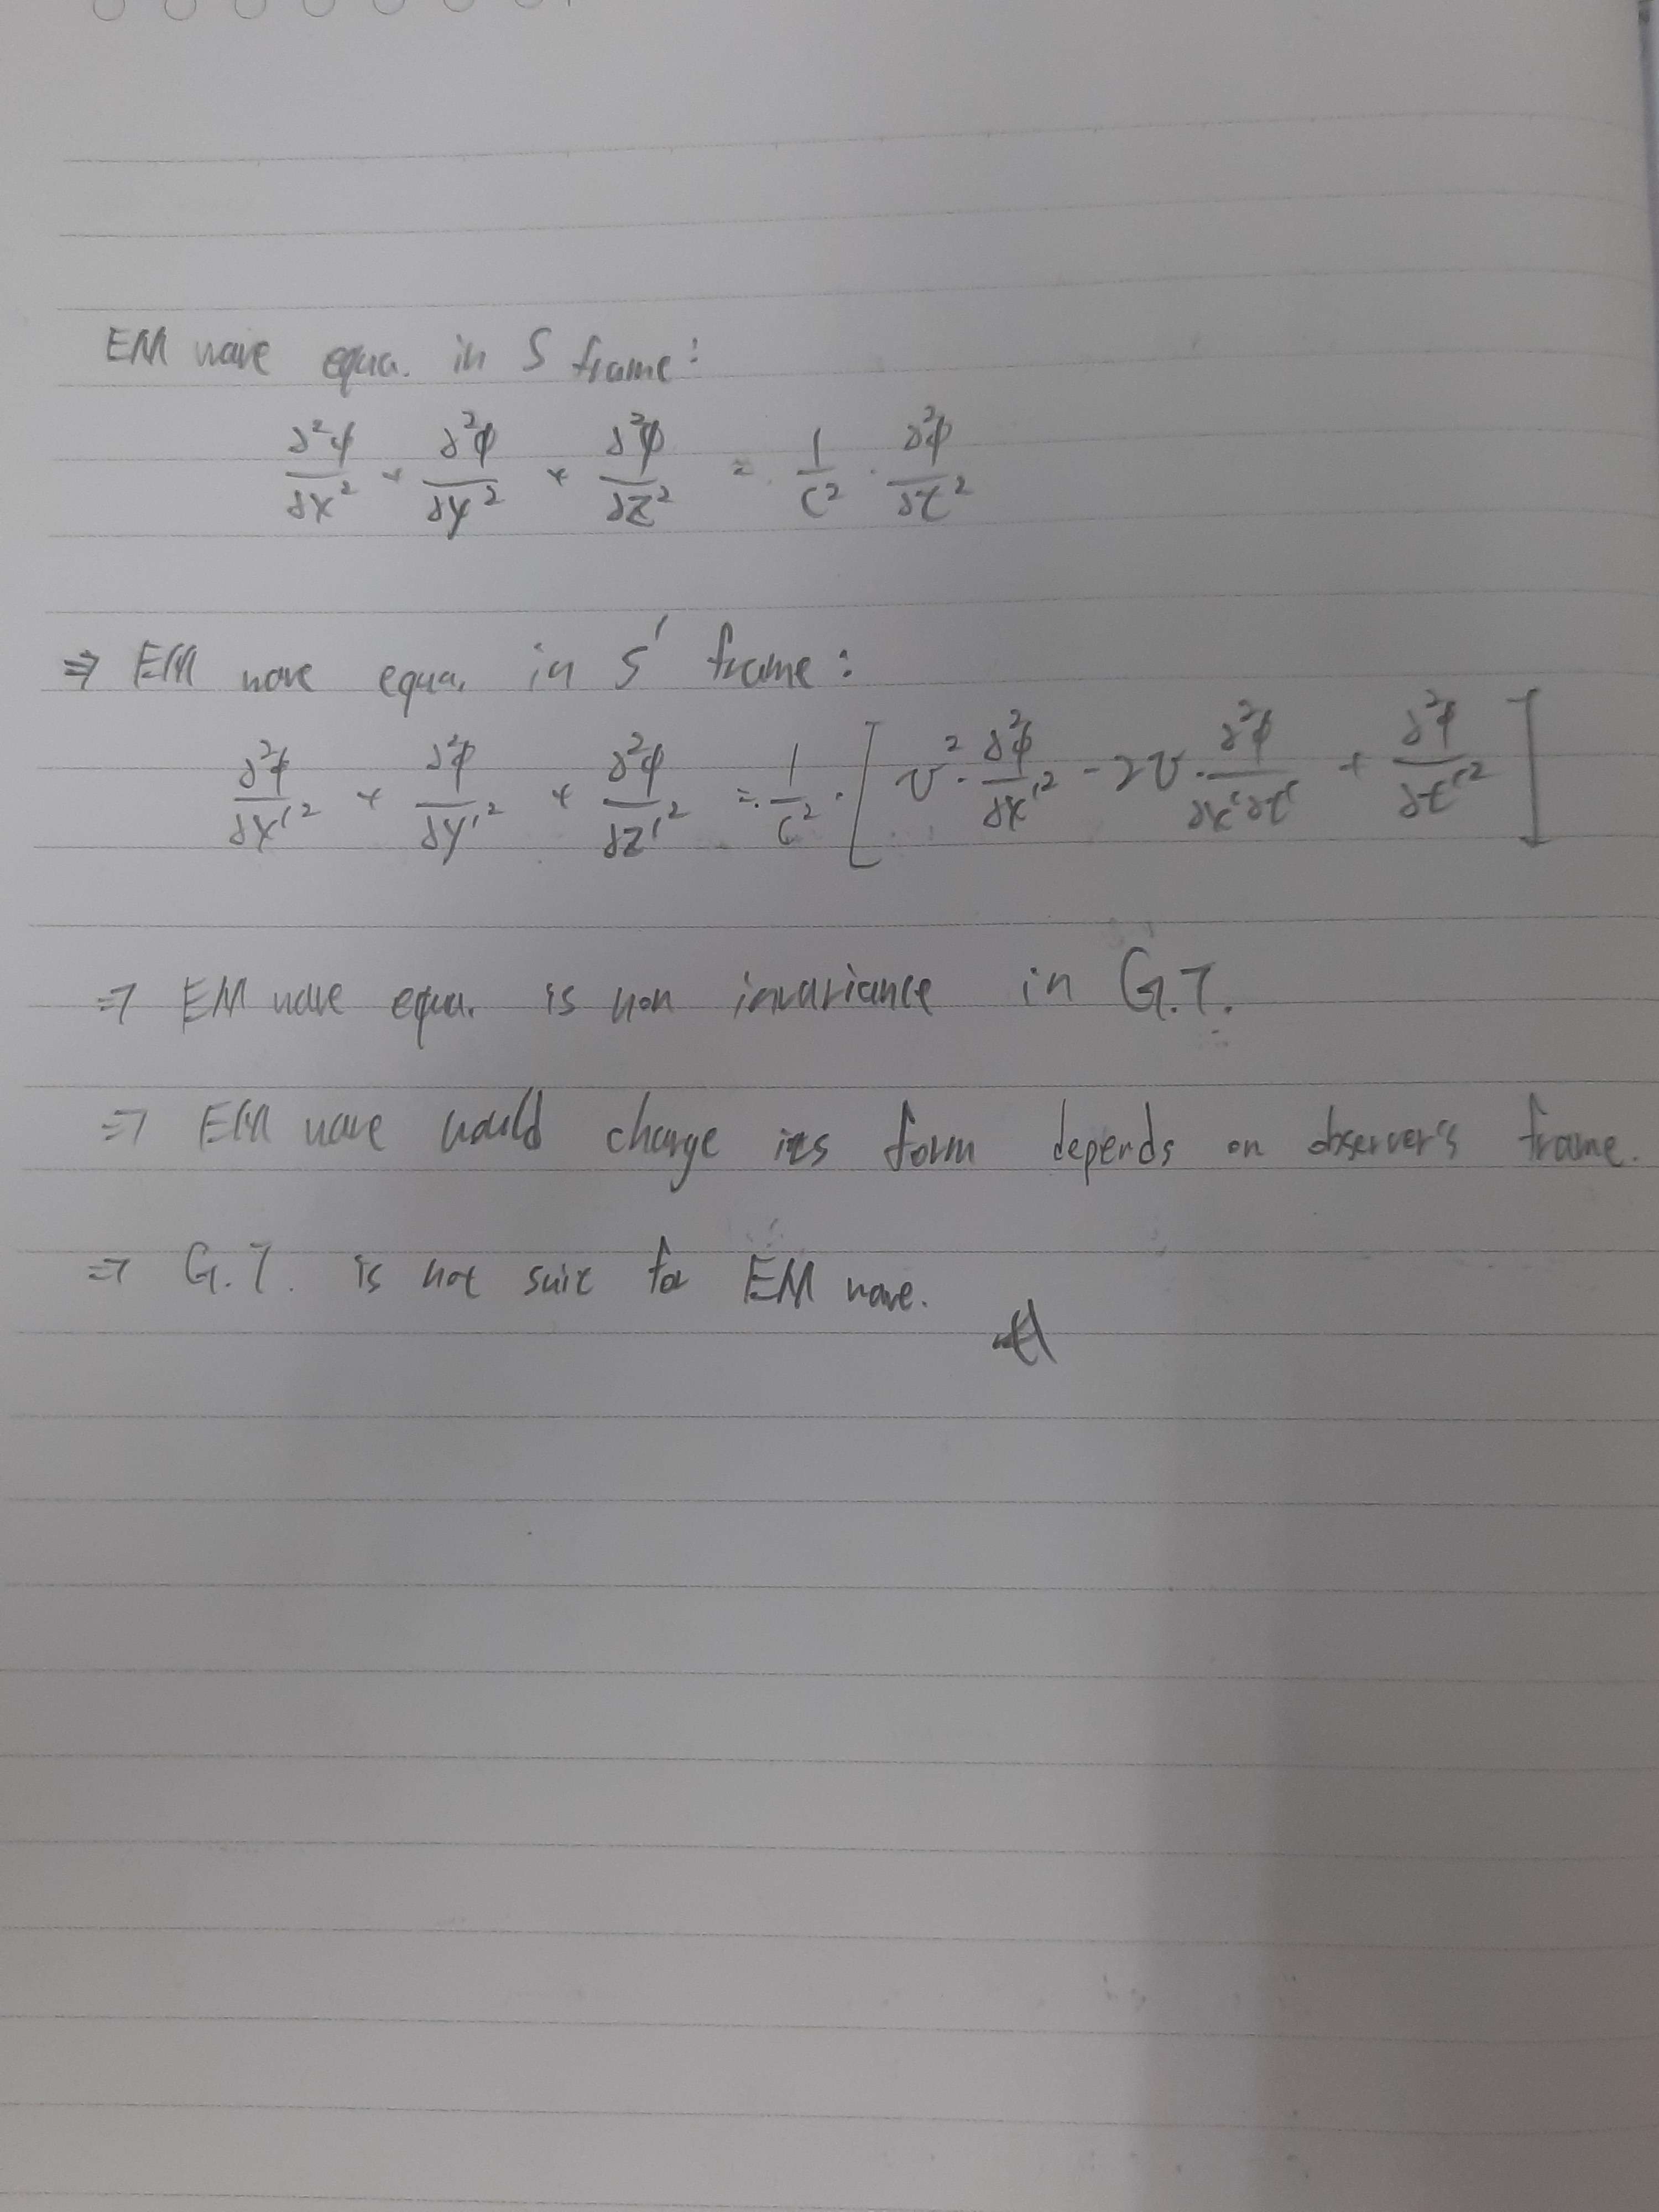 EM wave equa. in S frame:
∂²φ/∂x² + ∂²φ/∂y² + ∂²φ/∂z² = 1/c² · ∂²φ/∂t²
⇒ EM wave equa. in S' frame:
∂²φ/∂x'² + ∂²φ/∂y'² + ∂²φ/∂z'² = 1/c² · [ v² · ∂²φ/∂x'² - 2v · ∂²φ/∂x'∂t' + ∂²φ/∂t'² ]
⇒ EM wave equa. is non invariance in G.T.
⇒ EM wave would change its form depends on observer's frame.
⇒ G.T. is not suit for EM wave.